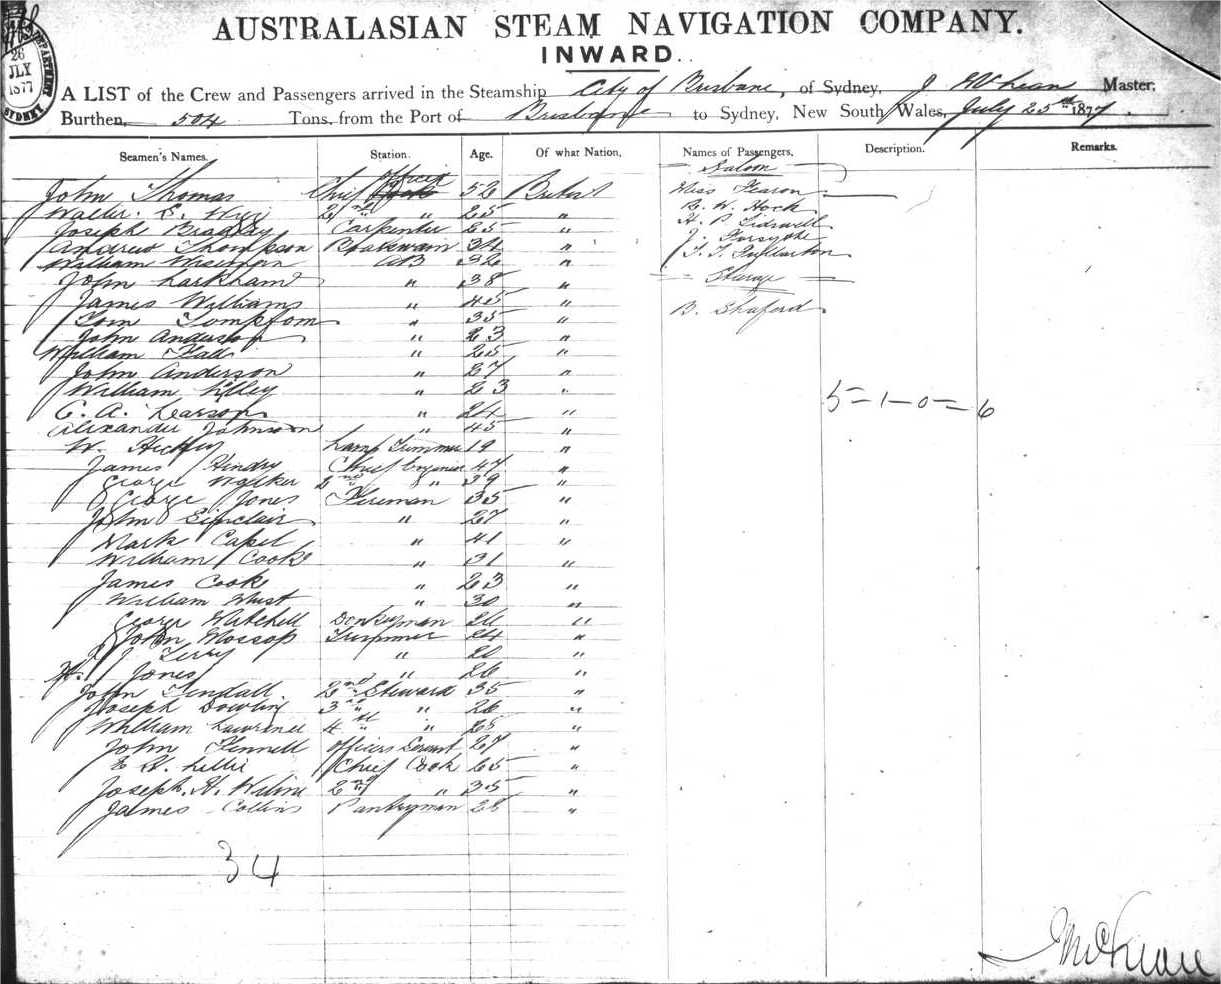 AUSTRALASIAN STEAM NAVIGATION COMPANY.
INWARD.
26
JLY
1877
SYDNEY
A LIST of the Crew and Passengers arrived in the Steamship City of Brisbane, of Sydney, J McLean Master,
Burthen, 504 Tons, from the Port of Brisbane to Sydney, New South Wales, July 25th 1877.
Seamen's Names. Station. Age. Of what Nation, Names of Passengers, Description. Remarks.
Saloon
John Thomas Chief Officer 52 British Miss Fearon
Walter S. 2nd " 25 " R. W. Hock
Joseph Bradley Carpenter 25 " H. P. Tidswell
Andrew Thompson Boatswain 34 " J. Forsythe
William Wiseman AB 32 " T. T. Fullarton
John Larkham " 38 " Steerage
James Williams " 45 "
Tom Tompson " 35 " B. Shaford
John Anderson " 23 "
William Hall " 25 "
John Anderson " 27 "
William Lilley " 23 "
C. A. Pearson " 24 " 5-1-0-6
Alexander Johnson " 45 "
W. Lamp Trimmer 19 "
James Hendry Chief Engineer 47 "
George Walker 2nd " 39 "
George Jones Fireman 35 "
John Sinclair " 27 "
Mark Capel " 41 "
William Cooke " 31 "
James Cook " 23 "
William " 30 "
George Mitchell Donkeyman "
John Mossop Trimmer 24 "
J Terry " 20 "
H. Jones " 26 "
John Tendall 2nd Steward 35 "
Joseph Dowling 3rd " 26 "
William Lawrence 4th " 25 "
John Fennell Officers Servant 27 "
E H. Lillie Chief Cook 25 "
Joseph. H. 2nd " 35 "
James Collins Pantryman 28 "
34
J McLean